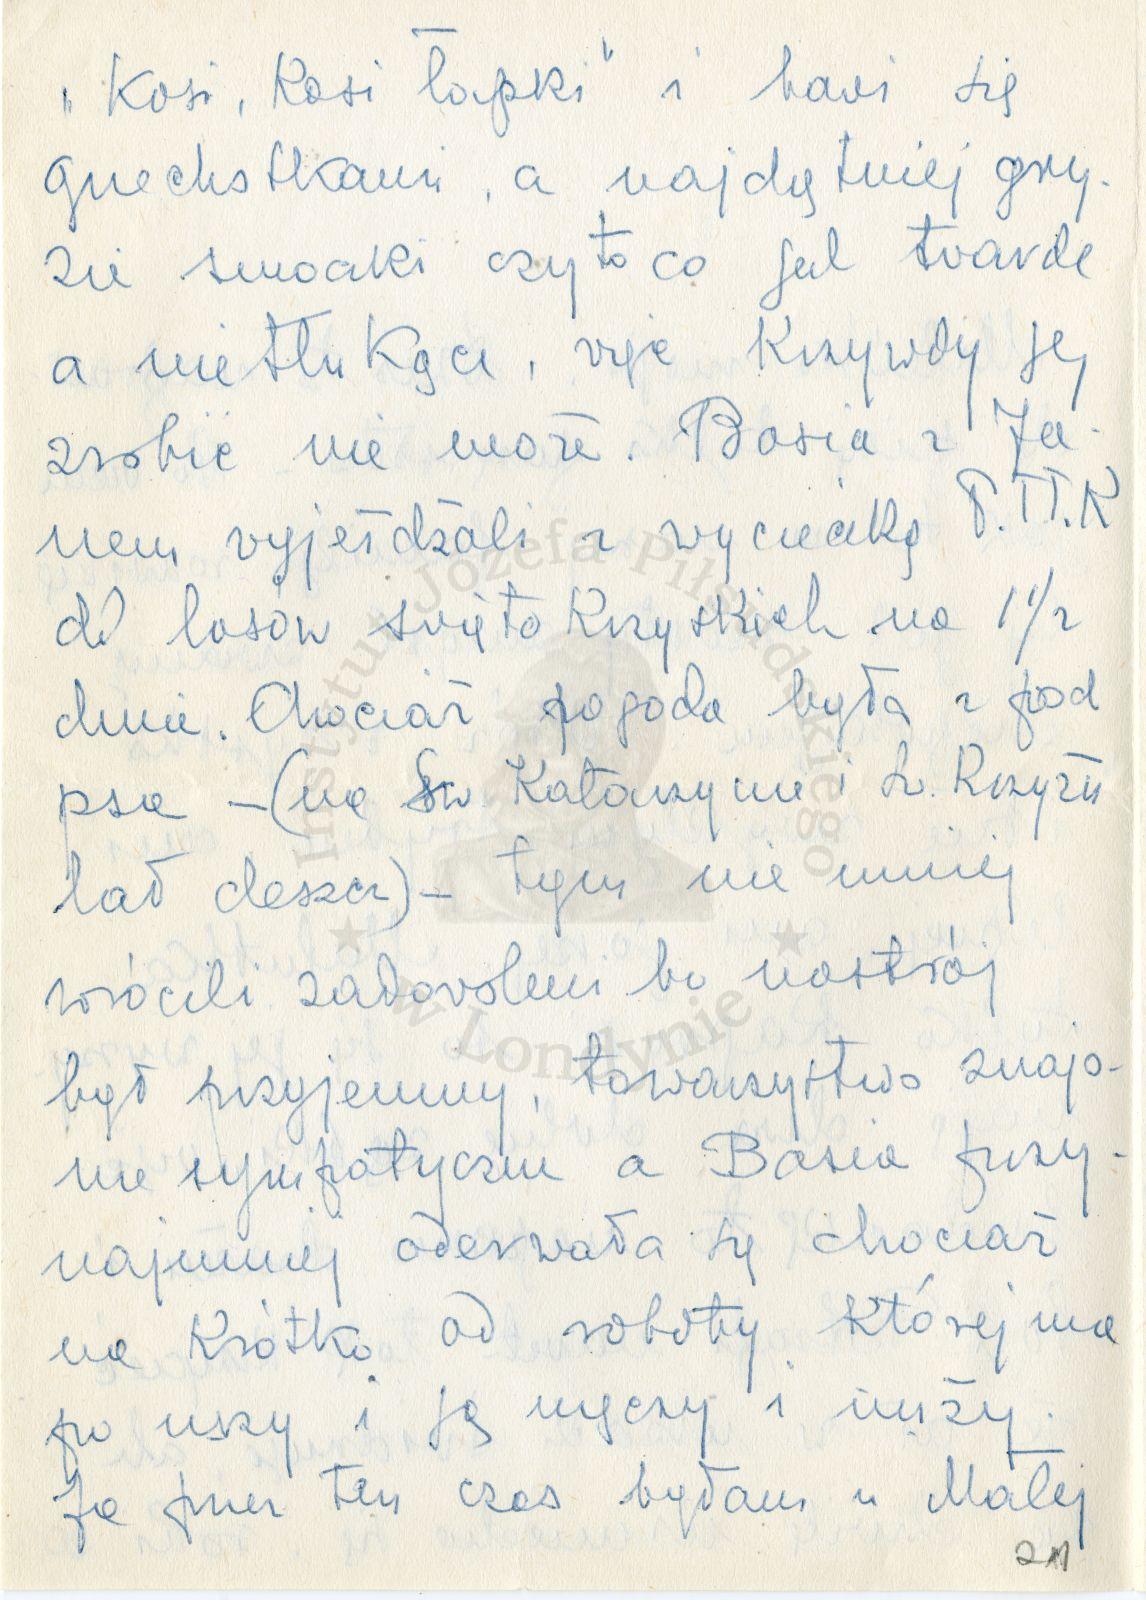 "Kosi, Kosi łapki" i bawi się
grzechotkami, a najchętniej gry-
zie smoczki czy to co jest twarde
a nietłukące, więc krzywdy jej
zrobić nie może. Basia z Ja-
nem wyjeżdżali z wycieczką P.T.T.K
do lasów świętokrzyskich na 1 1/2
dnia. Chociaż pogoda była z pod
psa – (na Św. Katarzynie i Św. Krzyżu
lał deszcz) – tym nie mniej
wrócili zadowoleni bo nastrój
był przyjemny, towarzystwo znajo-
me sympatyczne a Basia przy-
najmniej oderwała się chociaż
na krótko od roboty, której ma
po uszy i ją męczy i nuży.
Ja przez ten czas byłam u Małej
211
Instytut Józefa Piłsudskiego
w Londynie